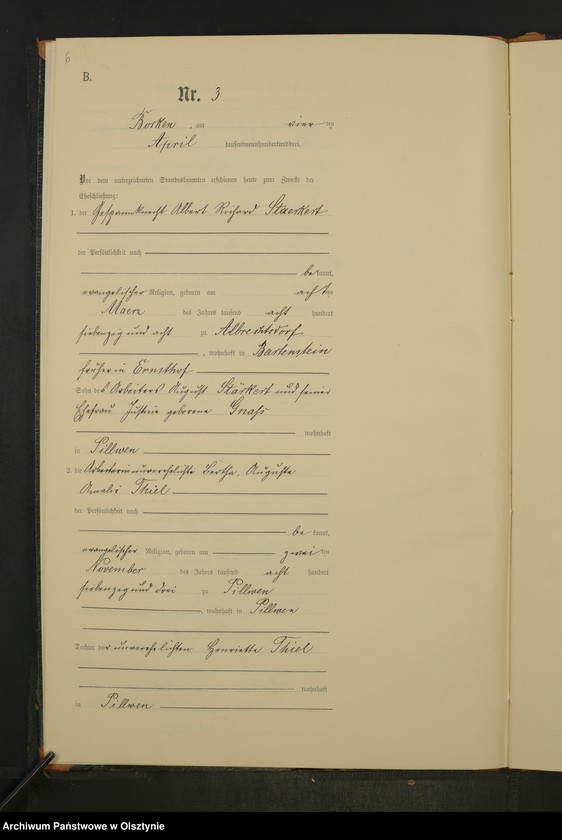 6
B.
Nr. 3.
Borken, am vier ten
April tausendneunhundertunddrei.
Vor dem unterzeichneten Standesbeamten erschienen heute zum Zwecke der
Eheschließung:
1. der Gespannknecht Albert Richard Staerkert
der Persönlichkeit nach
bekannt,
evangelischer Religion, geboren am achten
Maerz des Jahres tausend acht hundert
siebenzig und acht zu Albrechtsdorf
, wohnhaft in Bartenstein
früher in Ernsthof
Sohn des Arbeiters August Stärkert und seiner
Ehefrau Justine geborene Gnaß
wohnhaft
in Pillwen
2. die Arbeiterin unverehelichte Bertha, Auguste
Amalie Thiel
der Persönlichkeit nach
bekannt,
evangelischer Religion, geboren am zwei ten
November des Jahres tausend acht hundert
siebenzig und drei zu Pillwen
, wohnhaft in Pillwen
Tochter der unverehelichten Henriette Thiel
wohnhaft
in Pillwen
Archiwum Państwowe w Olsztynie